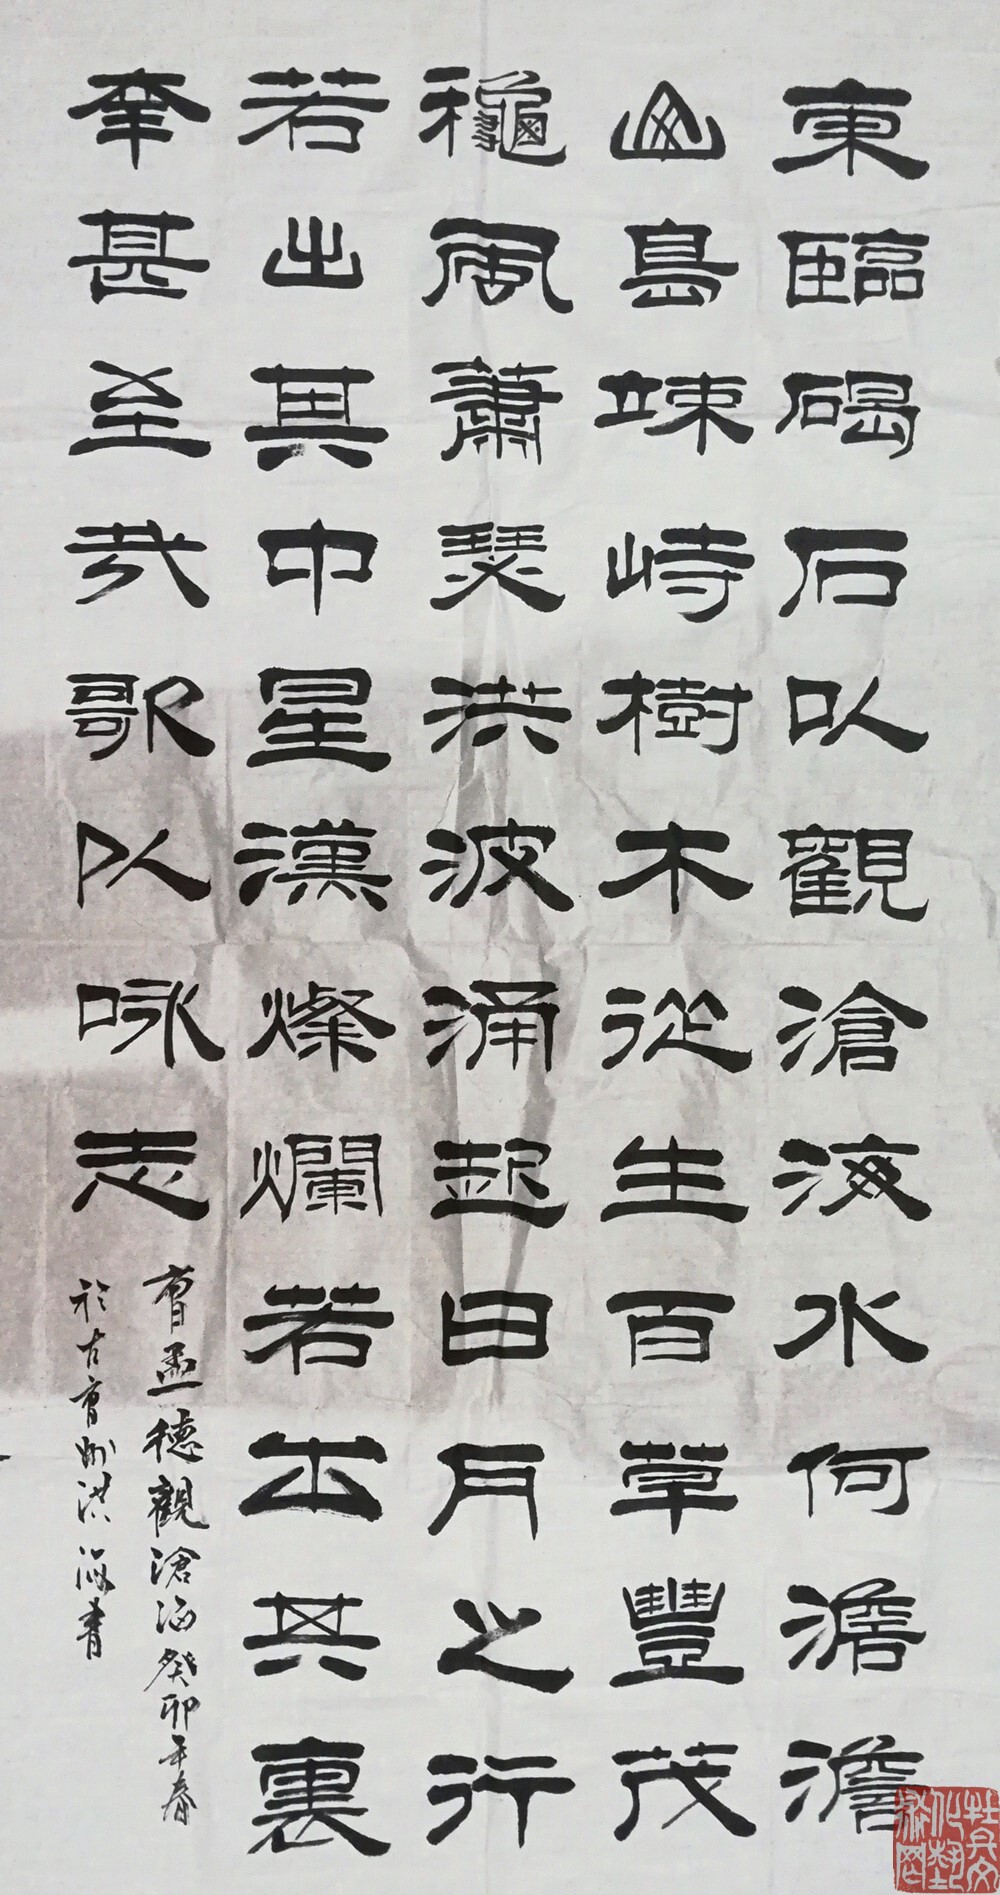 東臨碣石以觀滄海水何澹澹
山島竦峙樹木從生百草豐茂
龝風蕭瑟洪波涌起日月之行
若出其中星漢燦爛若出其裏
幸甚至哉歌以咏志
曹孟德觀滄海癸卯年春
於古曹州洪海青